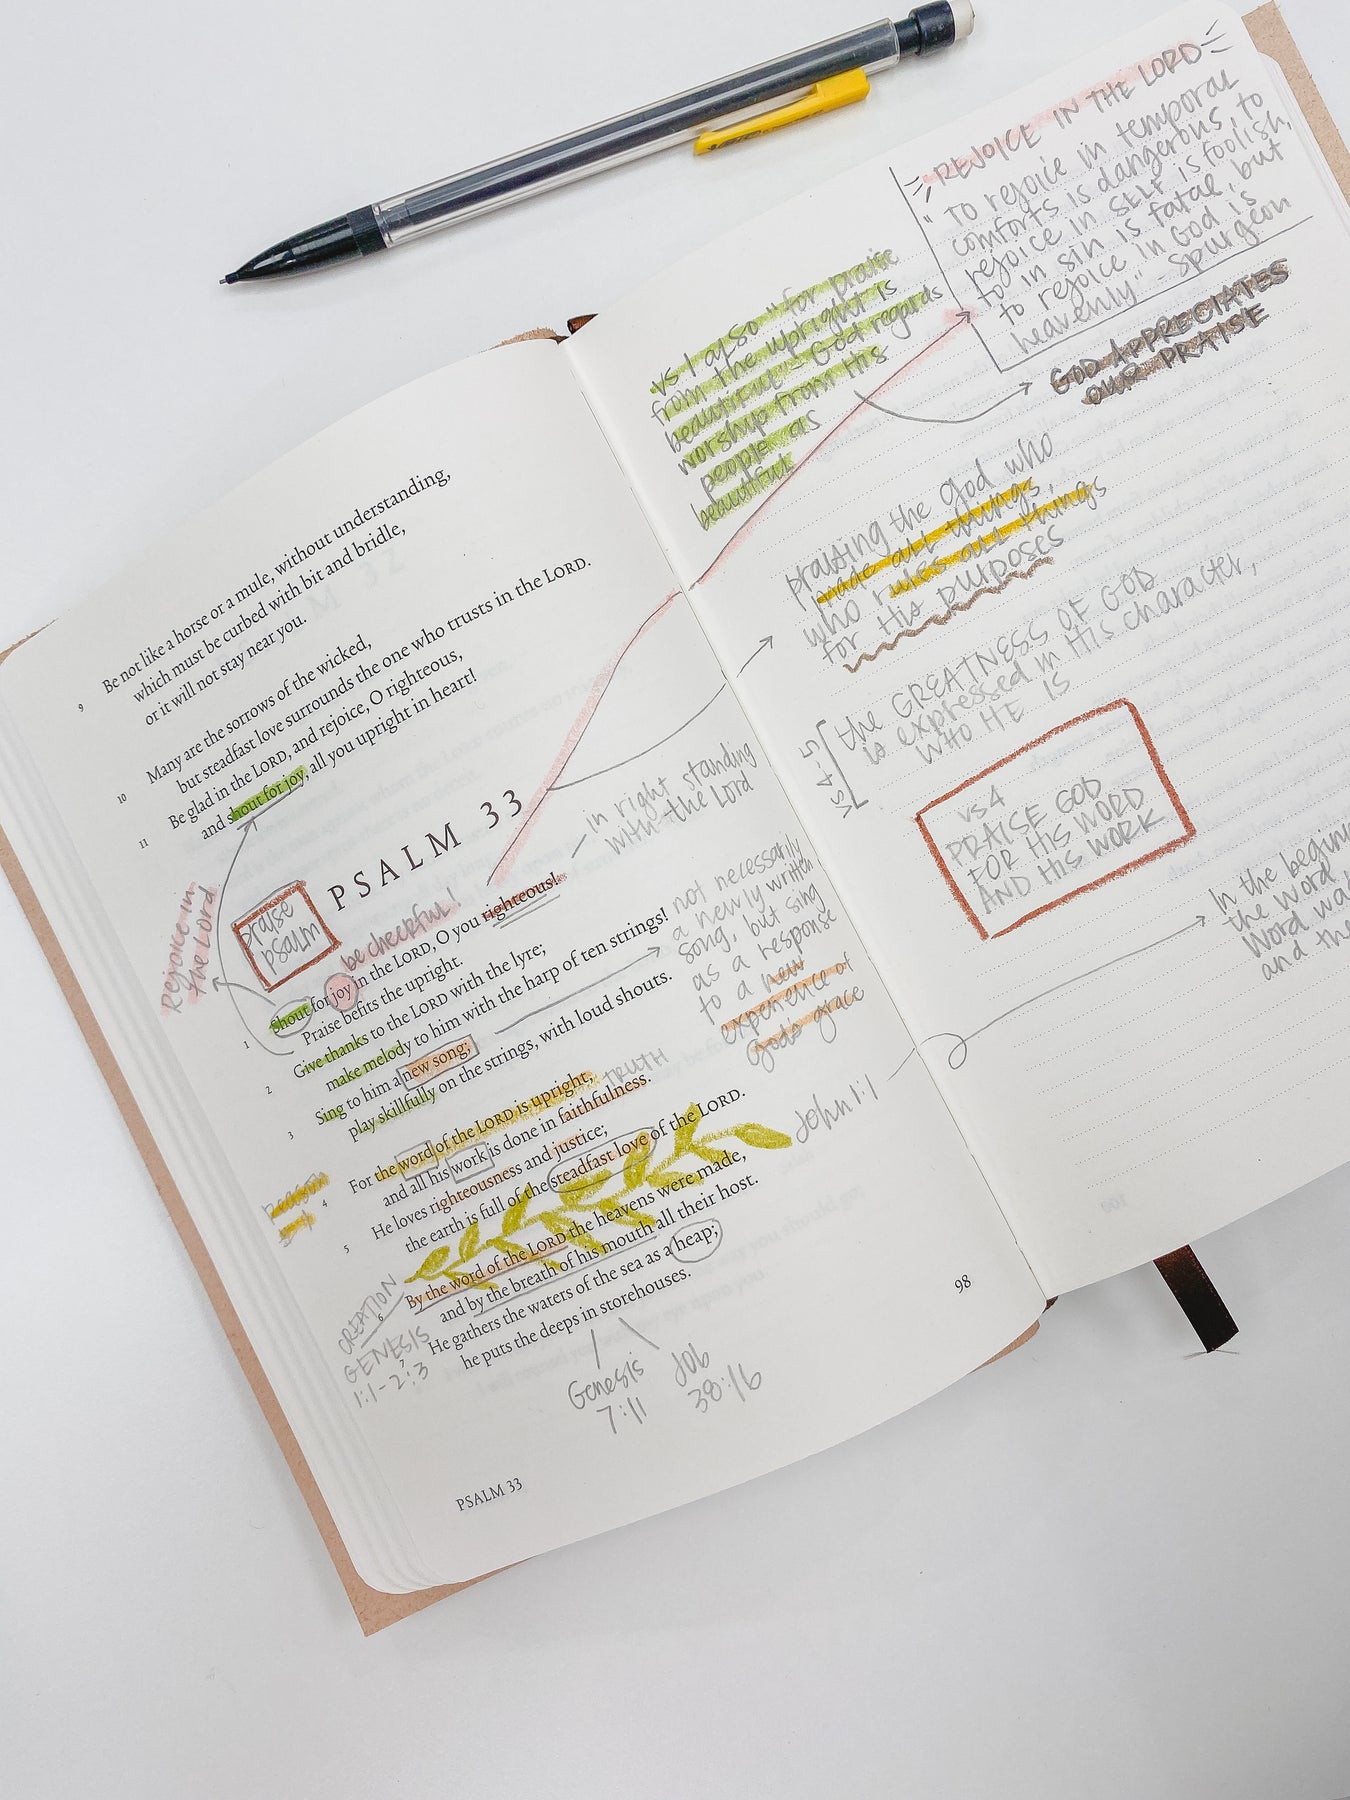 9 Be not like a horse or a mule, without understanding,
which must be curbed with bit and bridle,
or it will not stay near you.
10 Many are the sorrows of the wicked,
but steadfast love surrounds the one who trusts in the LORD.
11 Be glad in the LORD, and rejoice, O righteous,
and shout for joy, all you upright in heart!
PSALM 33
praise
psalm
be cheerful!
Rejoice in
the Lord
in right standing
with the Lord
1 Shout for joy in the LORD, O you righteous!
Praise befits the upright.
2 Give thanks to the LORD with the lyre;
make melody to him with the harp of ten strings!
3 Sing to him a new song;
play skillfully on the strings, with loud shouts.
not necessarily
a newly written
song, but sing
as a response
to a new
experience of
God's grace
TRUTH
4 For the word of the LORD is upright,
and all his work is done in faithfulness.
5 He loves righteousness and justice;
the earth is full of the steadfast love of the LORD.
John 1:1
6 By the word of the LORD the heavens were made,
and by the breath of his mouth all their host.
7 He gathers the waters of the sea as a heap;
he puts the deeps in storehouses.
CREATION
GENESIS
1:1-2:3
Genesis
7:11
Job
38:16
98
PSALM 33
REJOICE IN THE LORD
"To rejoice in temporal
comforts is dangerous, to
rejoice in SELF is foolish,
to in sin is fatal, but
to rejoice in God is
heavenly" - Spurgeon
vs 1 also "for praise
from the upright is
beautiful - God regards
worship from His
people as
beautiful
GOD APPRECIATES
OUR PRAISE
praising the God who
made all things,
who rules all things
for His purposes
vs 4-5
the GREATNESS OF GOD
is expressed in HIS character,
WHO HE IS
vs 4
PRAISE GOD
FOR HIS WORD
AND HIS WORK
In the beginn
the word
Word wa
and the